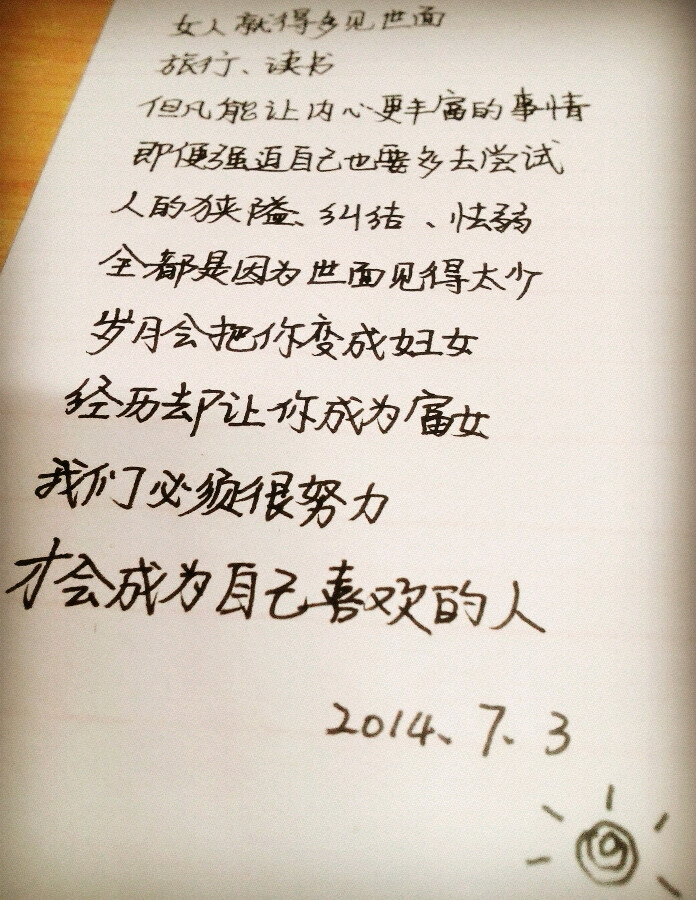 女人就得多见世面
旅行、读书
但凡能让内心更丰富的事情
即便强迫自己也要多去尝试
人的狭隘、纠结、怯弱
全都是因为世面见得太少
岁月会把你变成妇女
经历却让你成为富女
我们必须很努力
才会成为自己喜欢的人
2014、7、3